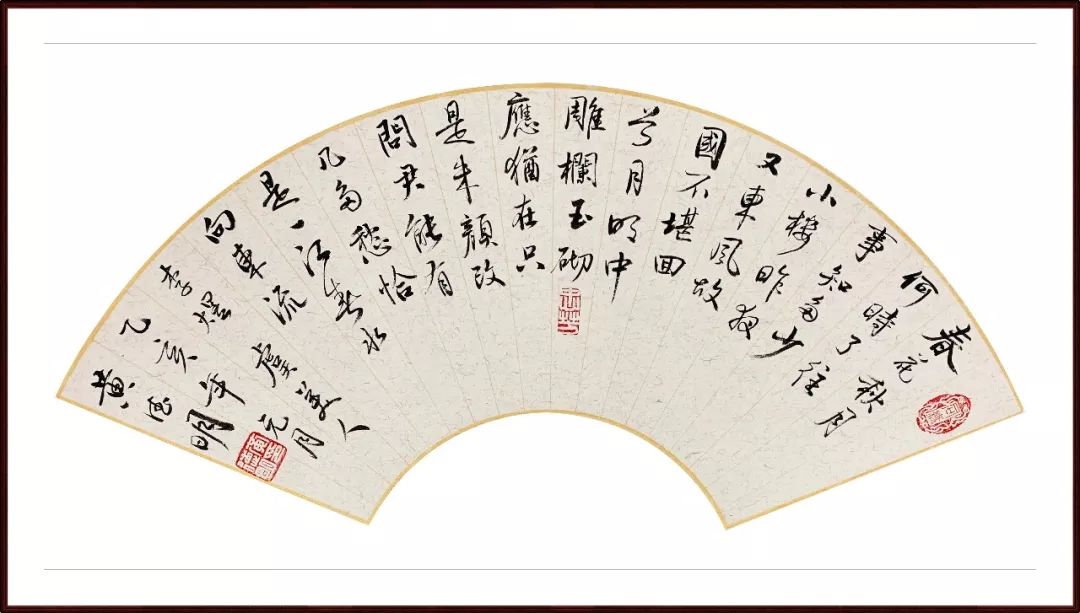 春花秋月
何時了往
事知多少
小樓昨夜
又東風故
國不堪回
首月明中
雕欄玉砌
應猶在只
是朱顏改
問君能有
几多愁恰
是一江春水
向東流
李煜 虞美人
己亥年元月
黄明